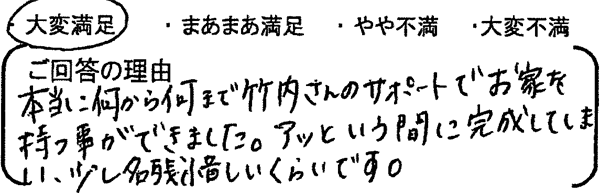 ・大変満足 ・まあまあ満足 ・やや不満 ・大変不満
ご回答の理由
本当に何から何まで竹内さんのサポートでお家を
持つ事ができました。アッという間に完成してしま
い、少し名残惜しいくらいです。